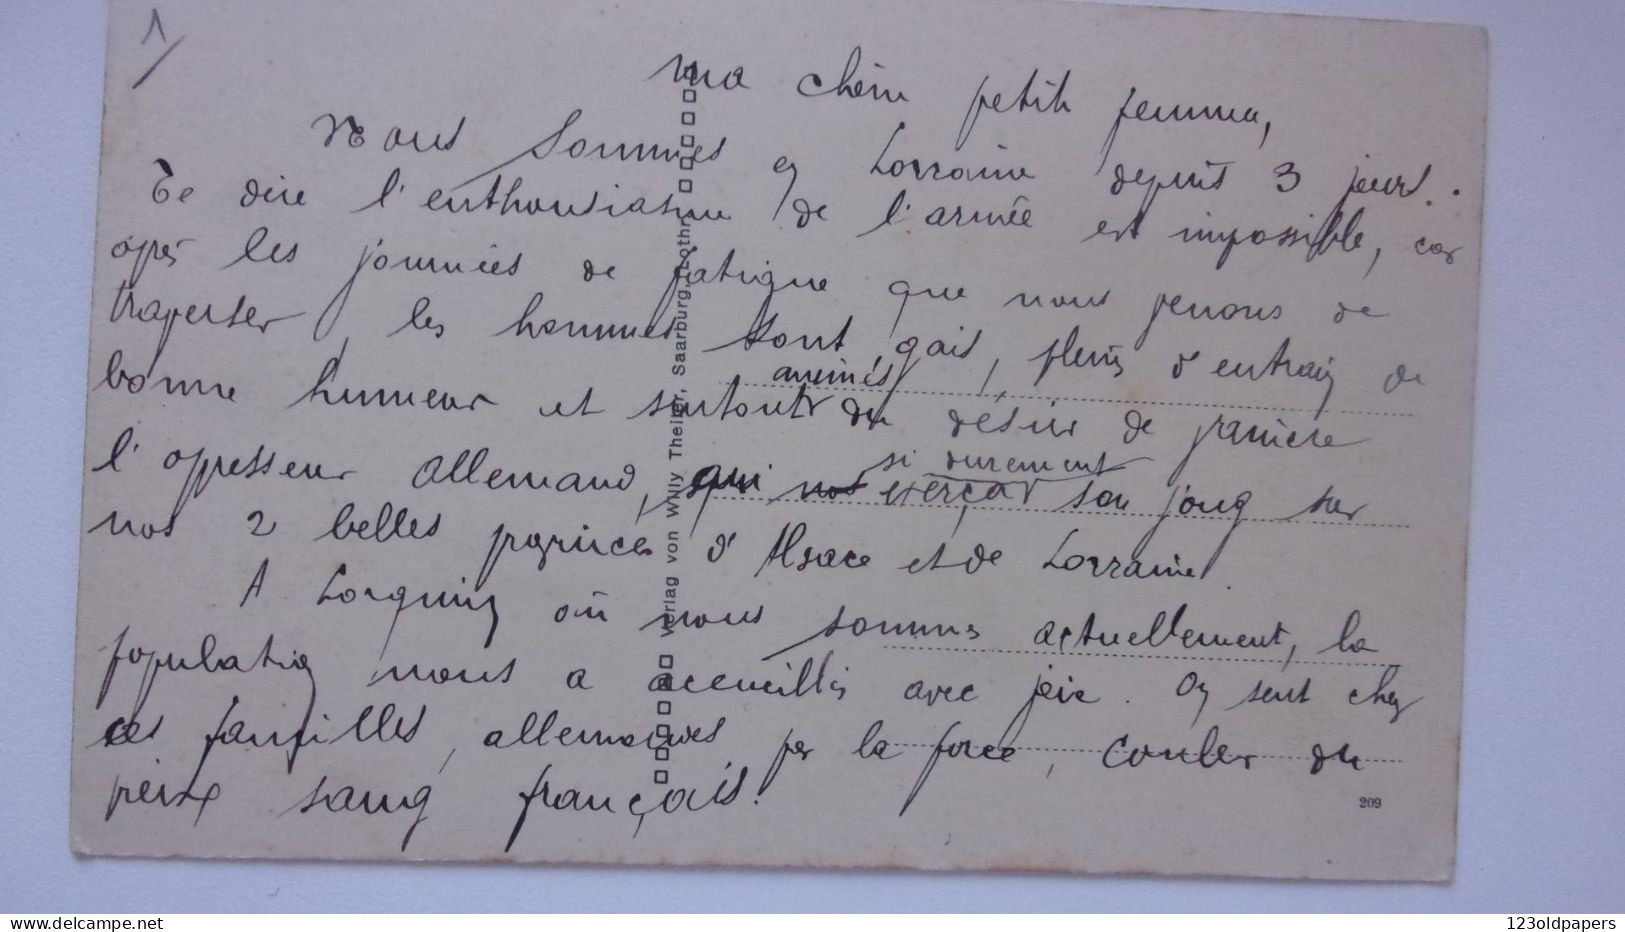 1/
Ma chère petite femme,
Nous sommes en Lorraine depuis 3 jours.
Te dire l'enthousiasme de l'armée est impossible, car
après les journées de fatigue que nous venons de
traverser, les hommes sont gais, pleins d'entrain de
bonne humeur et surtout animés du désir de vaincre
l'oppresseur allemand, qui nos si durement exerçar son joug sur
nos 2 belles provinces d'Alsace et de Lorraine.
A Lorquin où nous sommes actuellement, la
population nous a accueillis avec joie. On sent chez
ces familles, allemandes par la force, couler du
vieux sang français.
Verlag von Willy Theiler, Saarburg, Lothr.
209
123oldpapers